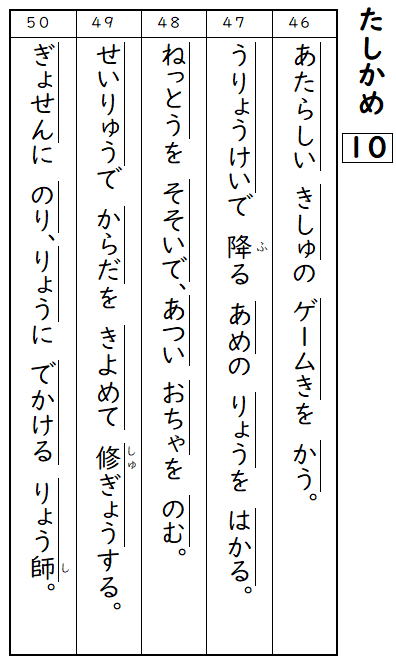 たしかめ
10
46
あたらしい きしゅの ゲームきを かう。
47
うりょうけいで 降る あめの りょうを はかる。
ふ
48
ねっとうを そそいで、あつい おちゃを のむ。
49
せいりゅうで からだを きよめて 修ぎょうする。
しゅ
50
ぎょせんに のり、りょうに でかける りょう師。
し